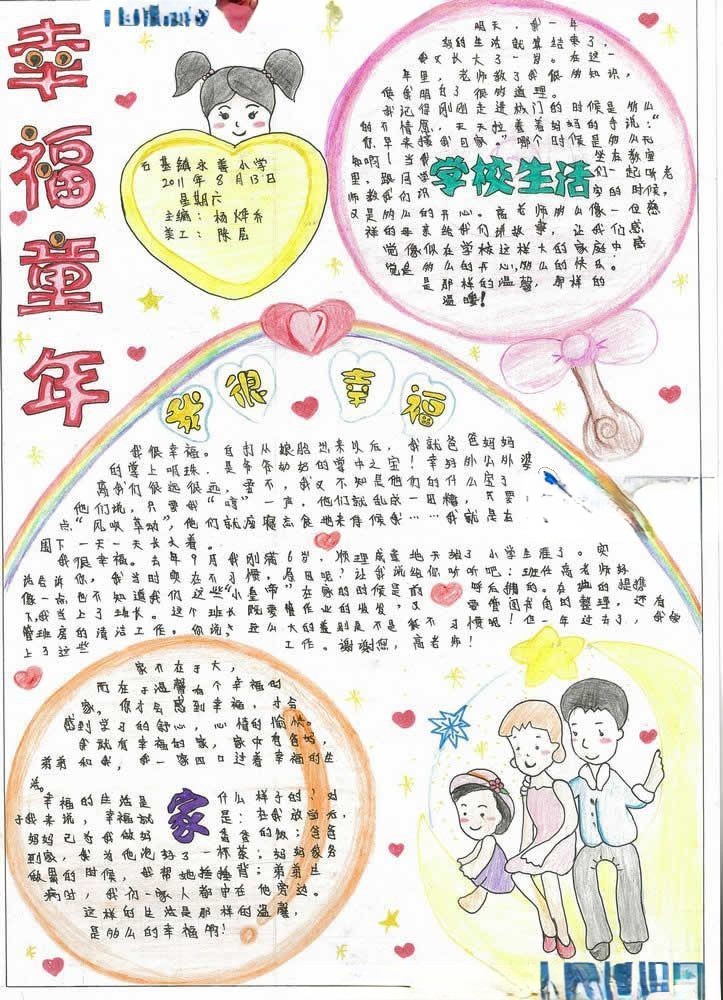 幸福童年
石基镇永善小学
2011年8月13日
星期六
主编：杨烨乔
美工：陈
明天，我一年
级的生活就算结束了，
我又长大了一岁。在这一
年里，老师教了我很多知识，
使我明白了很多道理。
我记得刚刚走进校门的时候是多么
的不情愿，天天拉着妈妈的手说：“
你早来接我回家。”哪个时候是多么无
知啊！当我坐在教室
里，跟同学们一起听老
师教我们识字的时候，
又是多么的开心。高老师多么像一位慈
祥的母亲给我们讲故事，让我们感
觉像似在学校这样大的家庭中感
觉是多么的开心，多么的快乐。
是那样的温馨，那样的
温暖！
学校生活
我很幸福
我很幸福。自打从娘胎出来以后，我就爸爸妈妈
的掌上明珠，是爷爷奶奶的掌中之宝！幸好外公外婆
离我们很远很远，要不，我又不知是他们的什么宝了
他们说，只要我“哼”一声，他们就乱成一团糟，只要
点“风吹草动”，他们就废寝忘食地来侍候我……我就是在
围下一天一天长大着。
我很幸福。去年9月我刚满6岁，顺理成章地开始了小学生涯了。实
话告诉你，我当时实在不习惯，原因呢？让我说给你听听吧：班任高老师好
像一点也不知道我们这些“小皇帝”在家的时候是前呼后拥的。在她的提携
下，我当上了班长。这个班长既要管作业的发发，又要管图书角的整理，还有
管班房的清洁工作。你说，这么大的差别是不是我不习惯呢！但一年过去了，我
上了这些工作。谢谢您，高老师！
家不在于大，
而在于温馨有个幸福的
家。你才会感到幸福，才会
感到学习的舒心，心情的愉快。
我就有幸福的家，家中有爸妈，
弟弟和我，我一家四口过着幸福的生
活。
幸福的生活是什么样子的？对
于我来说，幸福就是：在我放学后，
妈妈已为我做好香香的饭；爸爸
到家，我为他泡好了一杯茶；妈妈家务
做累的时候，我帮她捶捶背；弟弟生
病时，我们一家人都守在他旁边。
这样的生活是那样的温馨，
是多么的幸福啊！
家